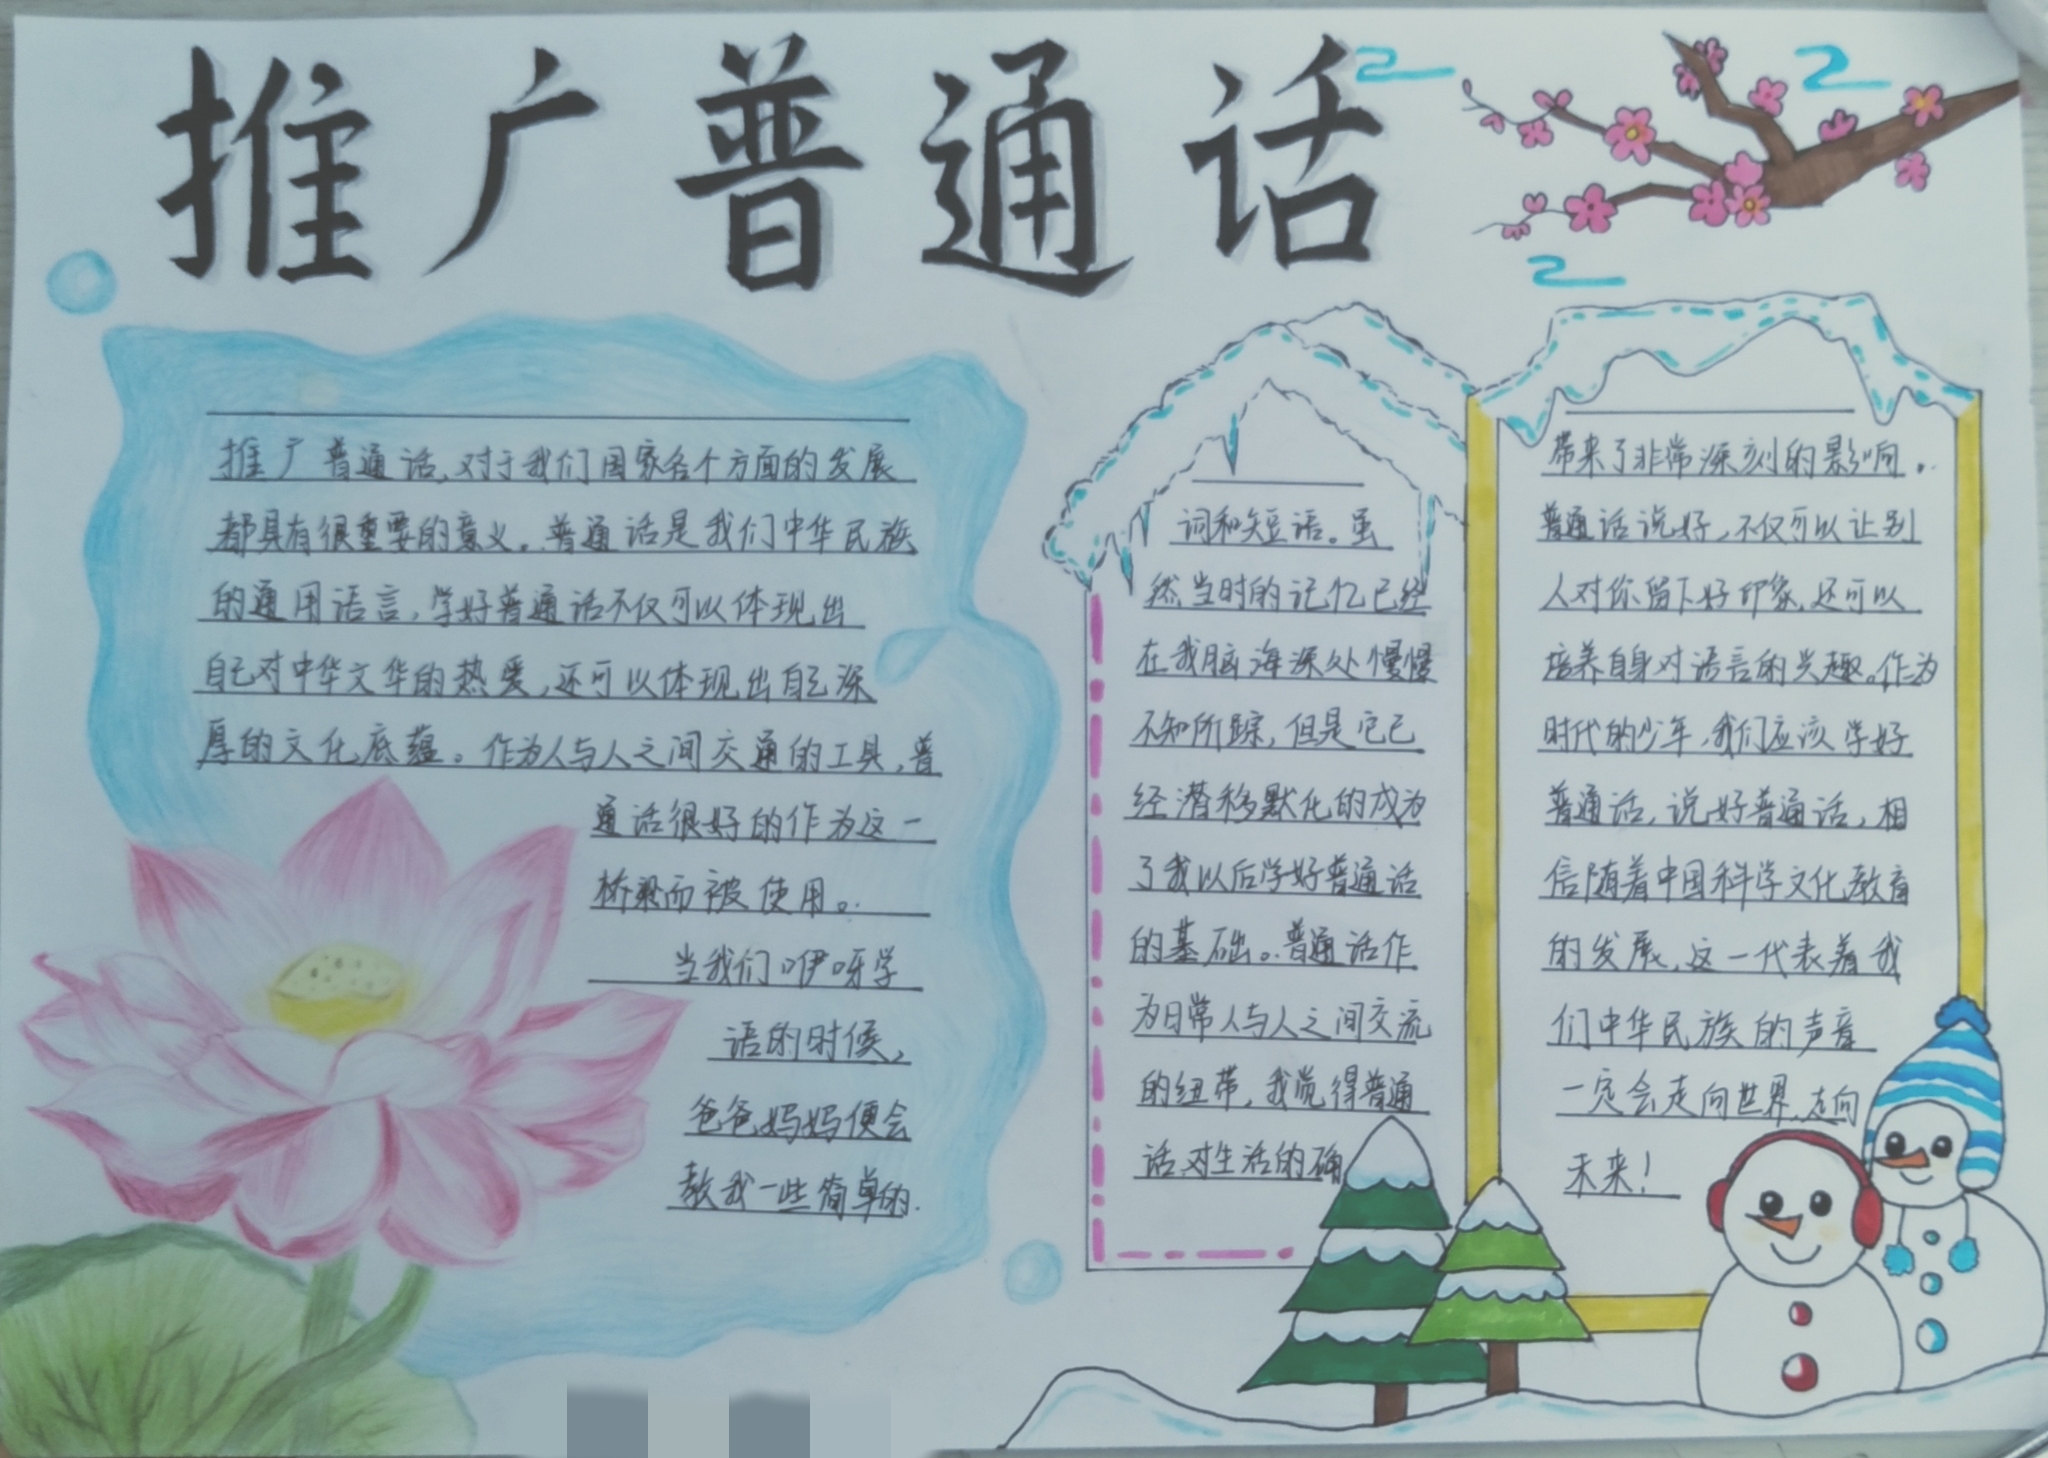 推广普通话
推广普通话,对于我们国家各个方面的发展
都具有很重要的意义。普通话是我们中华民族
的通用语言,学好普通话不仅可以体现出
自己对中华文华的热爱,还可以体现出自己深
厚的文化底蕴。作为人与人之间交通的工具,普
通话很好的作为这一
桥梁而被使用。
当我们咿呀学
语的时候,
爸爸妈妈便会
教我一些简单的
词和短语。虽
然当时的记忆已经
在我脑海深处慢慢
不知所踪,但是它已
经潜移默化的成为
了我以后学好普通话
的基础。普通话作
为日常人与人之间交流
的纽带,我觉得普通
话对生活的确
带来了非常深刻的影响。
普通话说好,不仅可以让别
人对你留下好印象,还可以
培养自身对语言的兴趣。作为
时代的少年,我们应该学好
普通话,说好普通话,相
信随着中国科学文化教育
的发展,这一代表着我
们中华民族的声音
一定会走向世界,走向
未来!